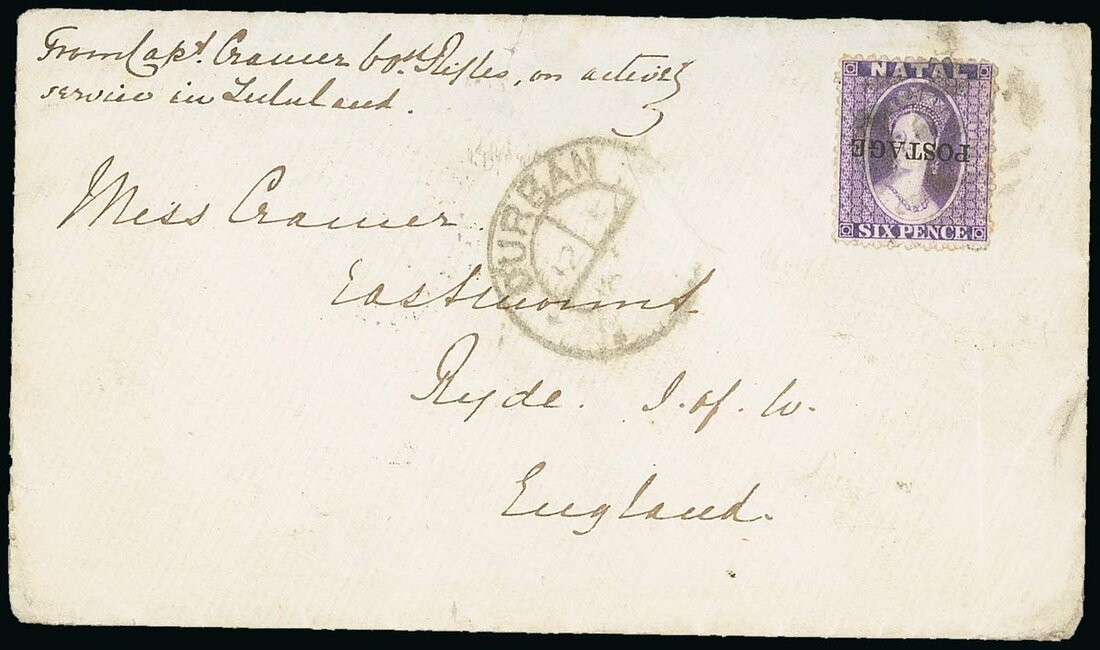 From Capt. Cramer 60th Rifles, on active
service in Zululand.
NATAL
POSTAGE
SIXPENCE
DURBAN
Miss Cramer.
Eastmount
Ryde. I. of. W.
England.